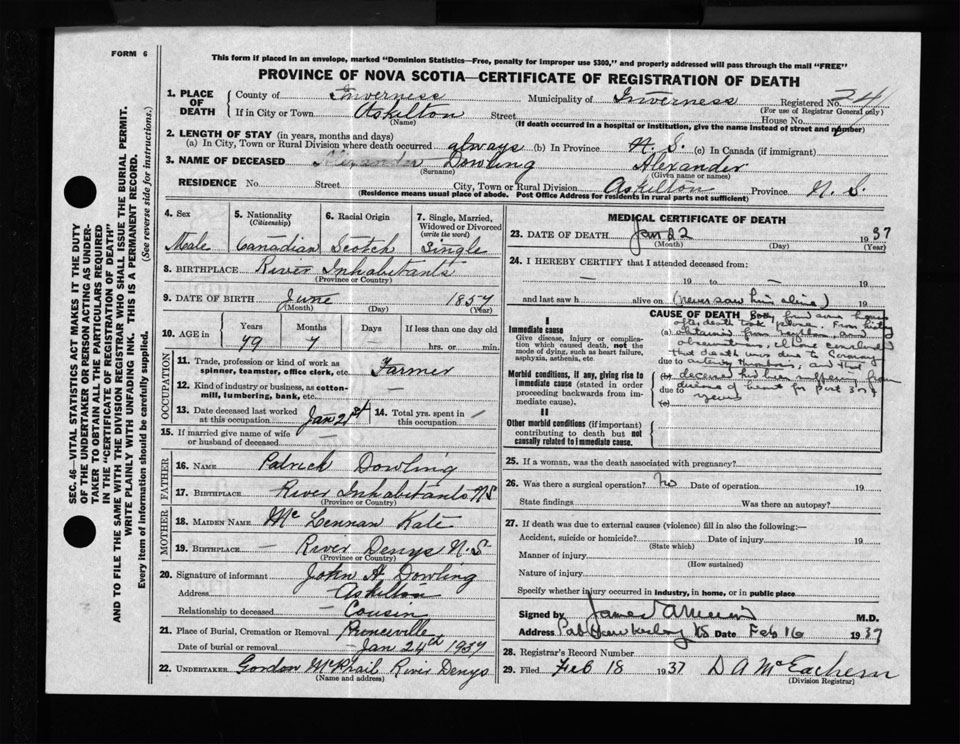 FORM 6
This form if placed in an envelope, marked "Dominion Statistics—Free, penalty for improper use $300," and properly addressed will pass through the mail "FREE"
PROVINCE OF NOVA SCOTIA—CERTIFICATE OF REGISTRATION OF DEATH
1. PLACE OF DEATH County of Inverness Municipality of Inverness Registered No. 24
(For use of Registrar General only)
If in City or Town Askilton Street House No.
(Name) (If death occurred in a hospital or institution, give the name instead of street and number)
2. LENGTH OF STAY (in years, months and days)
(a) In City, Town or Rural Division where death occurred always (b) In Province N.S. (c) In Canada (if immigrant)
3. NAME OF DECEASED Alexander Dowling Alexander
(Surname) (Given name or names)
RESIDENCE No. Street City, Town or Rural Division Askilton Province N.S.
(Residence means usual place of abode. Post Office Address for residents in rural parts not sufficient)
4. Sex 5. Nationality (Citizenship) 6. Racial Origin 7. Single, Married, Widowed or Divorced (write the word)
Male Canadian Scotch Single
8. BIRTHPLACE River Inhabitants
(Province or Country)
9. DATE OF BIRTH June 1857
(Month) (Day) (Year)
10. AGE in Years Months Days If less than one day old
79 7 — hrs. or min.
OCCUPATION
11. Trade, profession or kind of work as spinner, teamster, office clerk, etc. Farmer
12. Kind of industry or business, as cotton-mill, lumbering, bank, etc.
13. Date deceased last worked at this occupation Jan 21st 14. Total yrs. spent in this occupation —
15. If married give name of wife or husband of deceased —
FATHER
16. NAME Patrick Dowling
17. BIRTHPLACE River Inhabitants NS
(Province or Country)
MOTHER
18. MAIDEN NAME McLennan Kate
19. BIRTHPLACE — River Denys N.S
(Province or Country)
20. Signature of informant John H Dowling
Address Askilton
Relationship to deceased Cousin
21. Place of Burial, Cremation or Removal Princeville
Date of burial or removal Jan 24th 1937
22. UNDERTAKER Gordon McPhail River Denys
(Name and address)
MEDICAL CERTIFICATE OF DEATH
23. DATE OF DEATH Jan 22 1937
(Month) (Day) (Year)
24. I HEREBY CERTIFY that I attended deceased from:
— 19 to — 19
and last saw h alive on (never saw him alive) 19
CAUSE OF DEATH Body
I
Immediate cause
Give disease, injury or complication which caused death, not the mode of dying, such as heart failure, asphyxia, asthenia, etc.
after death took place. From history
(a) obtained from
observations, I concluded
that death was due to Coronary
due to
Morbid conditions, if any, giving rise to immediate cause (stated in order proceeding backwards from immediate cause).
(b) deceased had been suffering from
due to disease of heart for past
(c) years
II
Other morbid conditions (if important) contributing to death but not causally related to immediate cause.
25. If a woman, was the death associated with pregnancy?
26. Was there a surgical operation? No Date of operation 19
State findings Was there an autopsy?
27. If death was due to external causes (violence) fill in also the following:—
Accident, suicide or homicide? Date of injury 19
(State which)
Manner of injury
(How sustained)
Nature of injury
Specify whether injury occurred in industry, in home, or in public place
Signed by M.D.
Address Port Hawkesbury NS Date Feb 16 1937
28. Registrar's Record Number
29. Filed Feb 18 1937 D A McEachern
(Division Registrar)
SEC. 46—VITAL STATISTICS ACT MAKES IT THE DUTY
OF THE UNDERTAKER OR PERSON ACTING AS UNDER-
TAKER TO OBTAIN ALL THE PARTICULARS REQUIRED
IN THE "CERTIFICATE OF REGISTRATION OF DEATH"
AND TO FILE THE SAME WITH THE DIVISION REGISTRAR WHO SHALL ISSUE THE BURIAL PERMIT.
WRITE PLAINLY WITH UNFADING INK. THIS IS A PERMANENT RECORD.
Every item of information should be carefully supplied. (See reverse side for instructions.)